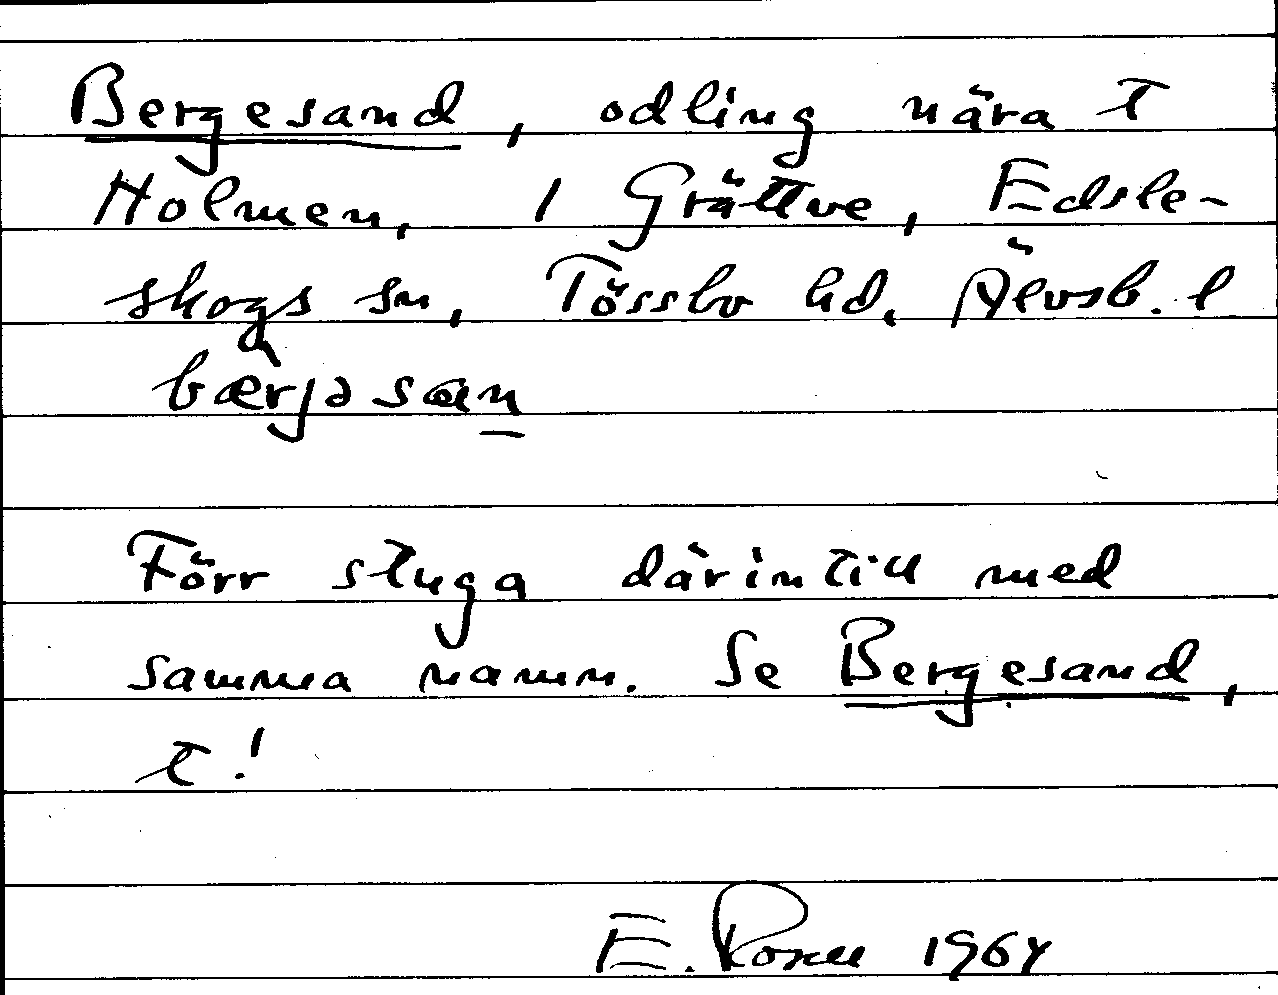 Bergesand, odling nära t
Holmen, 1 Grättve, Edsle-
skogs sn, Tössbo hd, Älvsb. l
bærjəsan
Förr stuga därintill med
samma namn. Se Bergesand,
t!
E. Rosell 1964